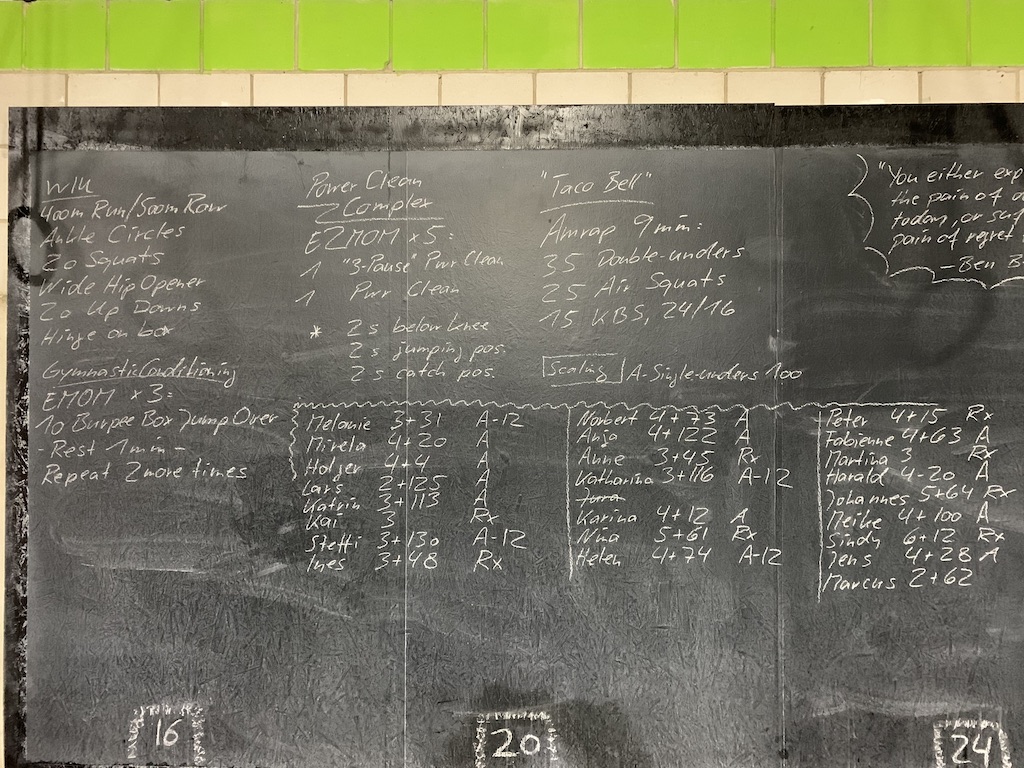 WU
400m Run/500m Row
Ankle Circles
20 Squats
Wide Hip Opener
20 Up Downs
Hinge on box
Gymnastic Conditioning
EMOM x 3:
10 Burpee Box Jump Over
- Rest 1 min -
Repeat 2 more times
Power Clean
Complex
E2MOM x 5:
1 "3-Pause" Pwr Clean
1 Pwr Clean
* 2s below knee
2s jumping pos.
2s catch pos.
"Taco Bell"
Amrap 9 min:
35 Double-unders
25 Air Squats
15 KBS, 24/16
Scaling A-Single-unders 100
"You either exp
the pain of
today, or suf
pain of regret
- Ben B
Melanie 3+31 A-12
Mirela 4+20 A
Holger 4+4 A
Lars 2+125 A
Katrin 3+113 A
Kai 3 Rx
Steffi 3+130 A-12
Ines 3+48 Rx
Norbert 4+73 A
Anja 4+122 A
Anne 3+45 Rx
Katharina 3+116 A-12
Jura
Karina 4+12 A
Nina 5+61 Rx
Helen 4+74 A-12
Peter 4+15 Rx
Fabienne 4+63 A
Martina 3 Rx
Harald 4-20 A
Johannes 5+64 Rx
Meike 4+100 A
Sindy 6+12 Rx
Jens 4+28 A
Marcus 2+62
16
20
24